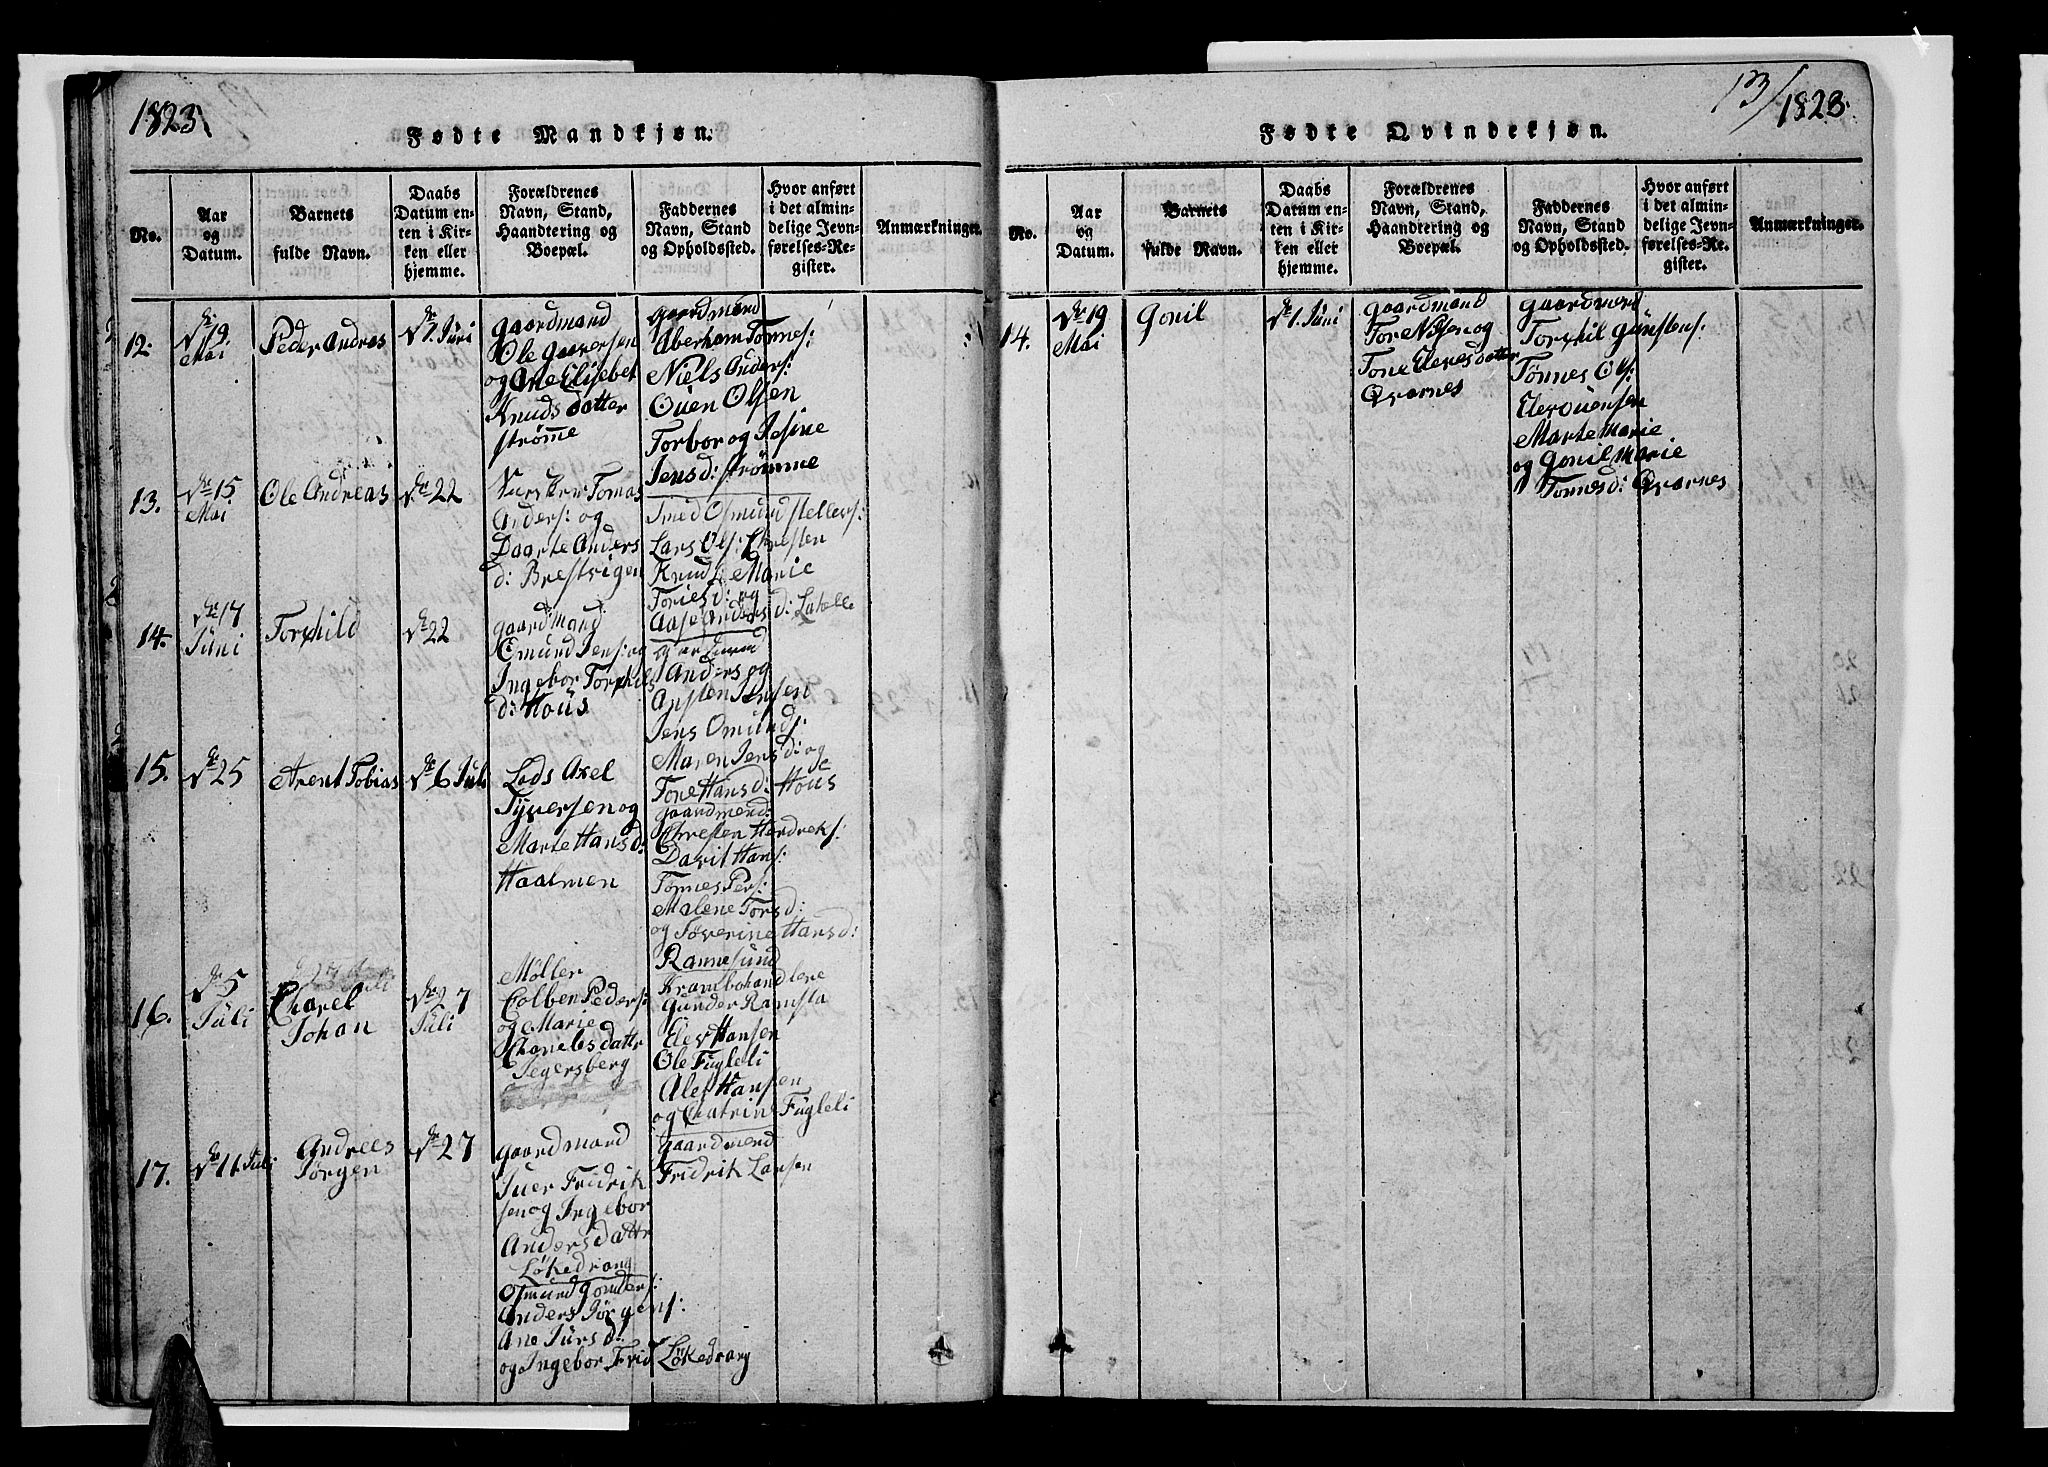 1823
Fødte Mandkjøn.
No.
Aar
og
Datum.
Barnets
fulde Navn.
Daabs
Datum en-
ten i Kir-
ken eller
hjemme.
Forældrenes
Navn, Stand,
Haandtering og
Boepæl.
Faddernes
Navn, Stand
og Opholdssted.
Hvor anført
i det almin-
delige Jevn-
førelses-Re-
gister.
Anmærkninger.
12.
dn 19
Mai
Peder Andras
dn 1. Juni
gaardmand
Ole gaaversen
og Ane Elisebet
Knuds datter
strømme
gaardmænd
Aberham Tønnes:
Niels Anders:
Ouen Olsen
Torbor og Jesine
Jensd: strømme
13.
dn 15
Mai
Ole Andreas
dn 22
Tomas
Anders: og
Daarte Anders
d: Brestvigen
Smed Osmund Hellers:
Lars Ols: Chresten
Knuds: Marie
Toriesd: og
Aase Andersd:
14.
dn 17
Juni
Torkild
dn 22
gaardmand
Emund Jens: og
Ingebor Torkils
d: Hous
Anders og
Ansten Jensen
Jens Omunds:
Maren Jensd: og
Tone Hansd: Hous
15.
dn 25
Arent Tobias
dn 6 Juli
Lods Axel
Syversen og
Marte Hansd:
Haalmen
gaardmend:
Chresten Hendreks:
Davit Hans:
Tønnes Pers:
Malene Torsd:
og Søverine Hansd:
Rannesund
16.
dn 5
Juli
Charel
Johan
dn 27
Juli
Møller
Colben Peders:
og Marie
Charelsdattr
Segersberg
Krambohandlere
gunder Ramsla
Elev Hansen
Ole Fugleli
Alef Hansen
og Chatrine Fugleli
17.
dn 11 Juli
Andrees
Jørgen
dn 27
gaardmand
Juer Fridrik
sen og Ingebor
Andersdattr
Løkedrang
gaardmend
Fridrik Larsen
Osmund gonders:
Anders Jørgens:
Ane Jursd:
og Ingebor Frid Løkedrang
13/
1823.
Fødte Qvindekjøn.
No.
Aar
og
Datum.
Barnets
fulde Navn.
Daabs
Datum en-
ten i Kir-
ken eller
hjemme.
Forældrenes
Navn, Stand,
Haandtering og
Boepæl.
Faddernes
Navn, Stand
og Opholdssted.
Hvor anført
i det almin-
delige Jevn-
førelses-Re-
gister.
Anmærkninger.
14.
dn 19
Mai
Gonil
dn 1. Juni
gaardmand
Tore Nilsen og
Tone Elevesdatter
Qvarnes
gaardmend
Torkil Gunstens:
Tønnes Ols:
Elev Ouensen
Marte Marie
og Gonil Marie
Tønnesd: Qvarnes